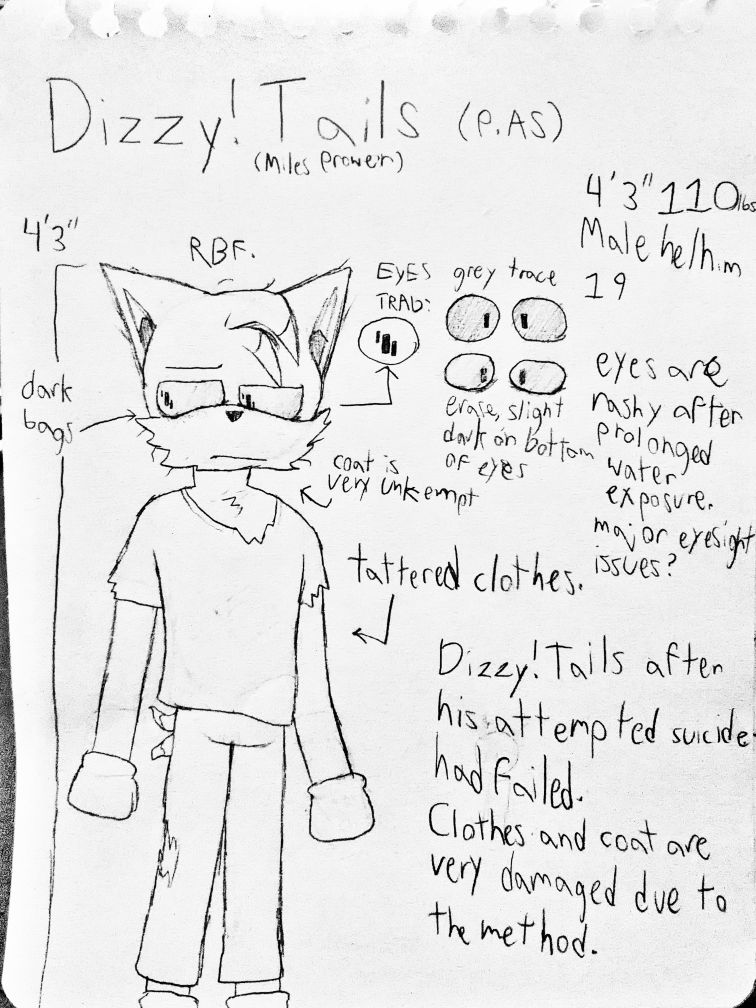 Dizzy! Tails (P.AS)
(Miles Prower)
4'3" 110lbs
Male he/him
19
4'3"
RBF.
EYES
TRAD:
grey trace
dark
bags
erase, slight
dark on bottom
of eyes
eyes are
rashy after
prolonged
water
exposure.
major eyesight
issues?
coat is
very unkempt
tattered clothes.
Dizzy! Tails after
his attempted suicide
had failed.
Clothes and coat are
very damaged due to
the method.